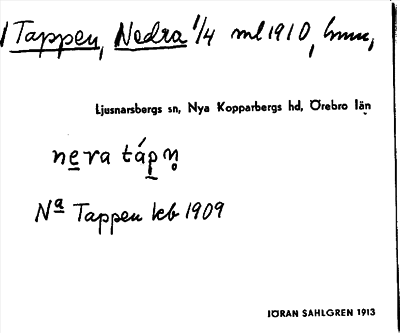 Tappen, Nedra 1/4 ml 1910, hmn,
Ljusnarsbergs sn, Nya Kopparbergs hd, Örebro län
nera tápn̥
Nª Tappen kb 1909
IÖRAN SAHLGREN 1913